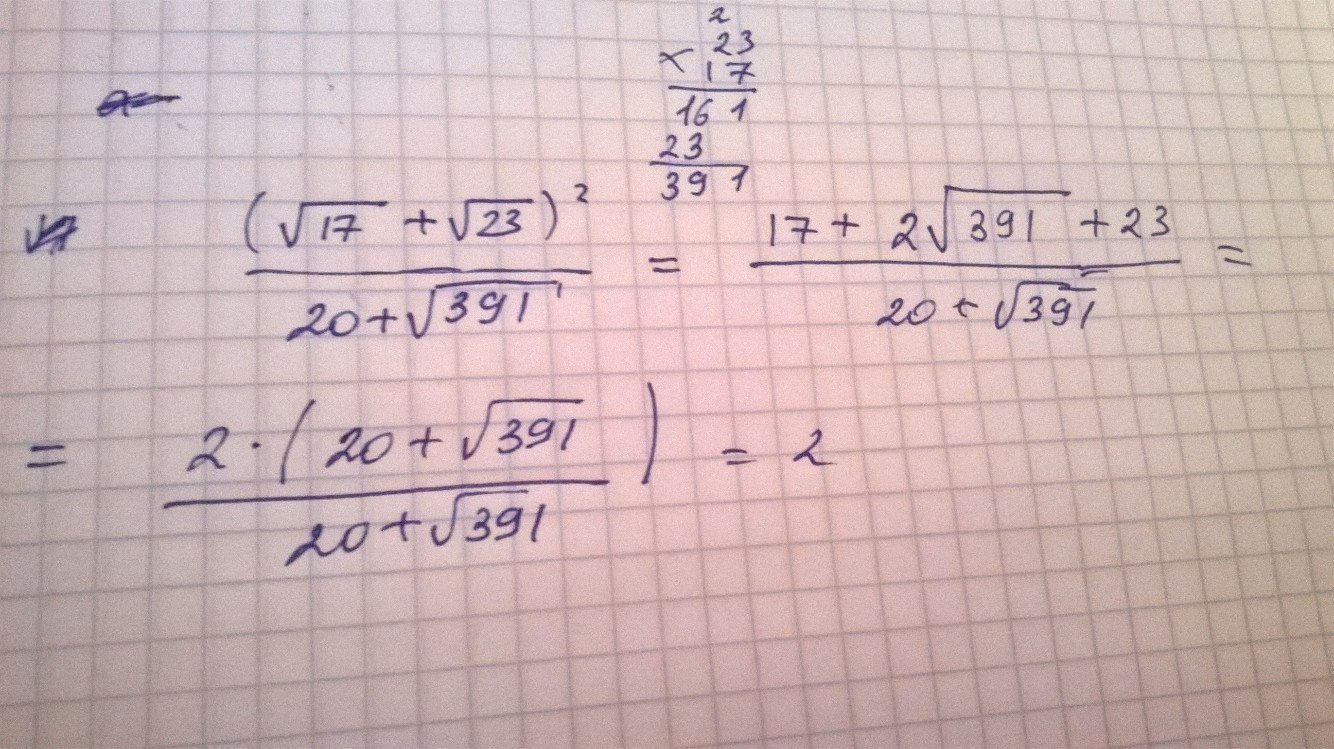 2
× 23
17
161
23
391
(√17 + √23)² / 20+√391 = 17 + 2√391 + 23 / 20 + √391 =
= 2·(20+√391) / 20+√391 = 2